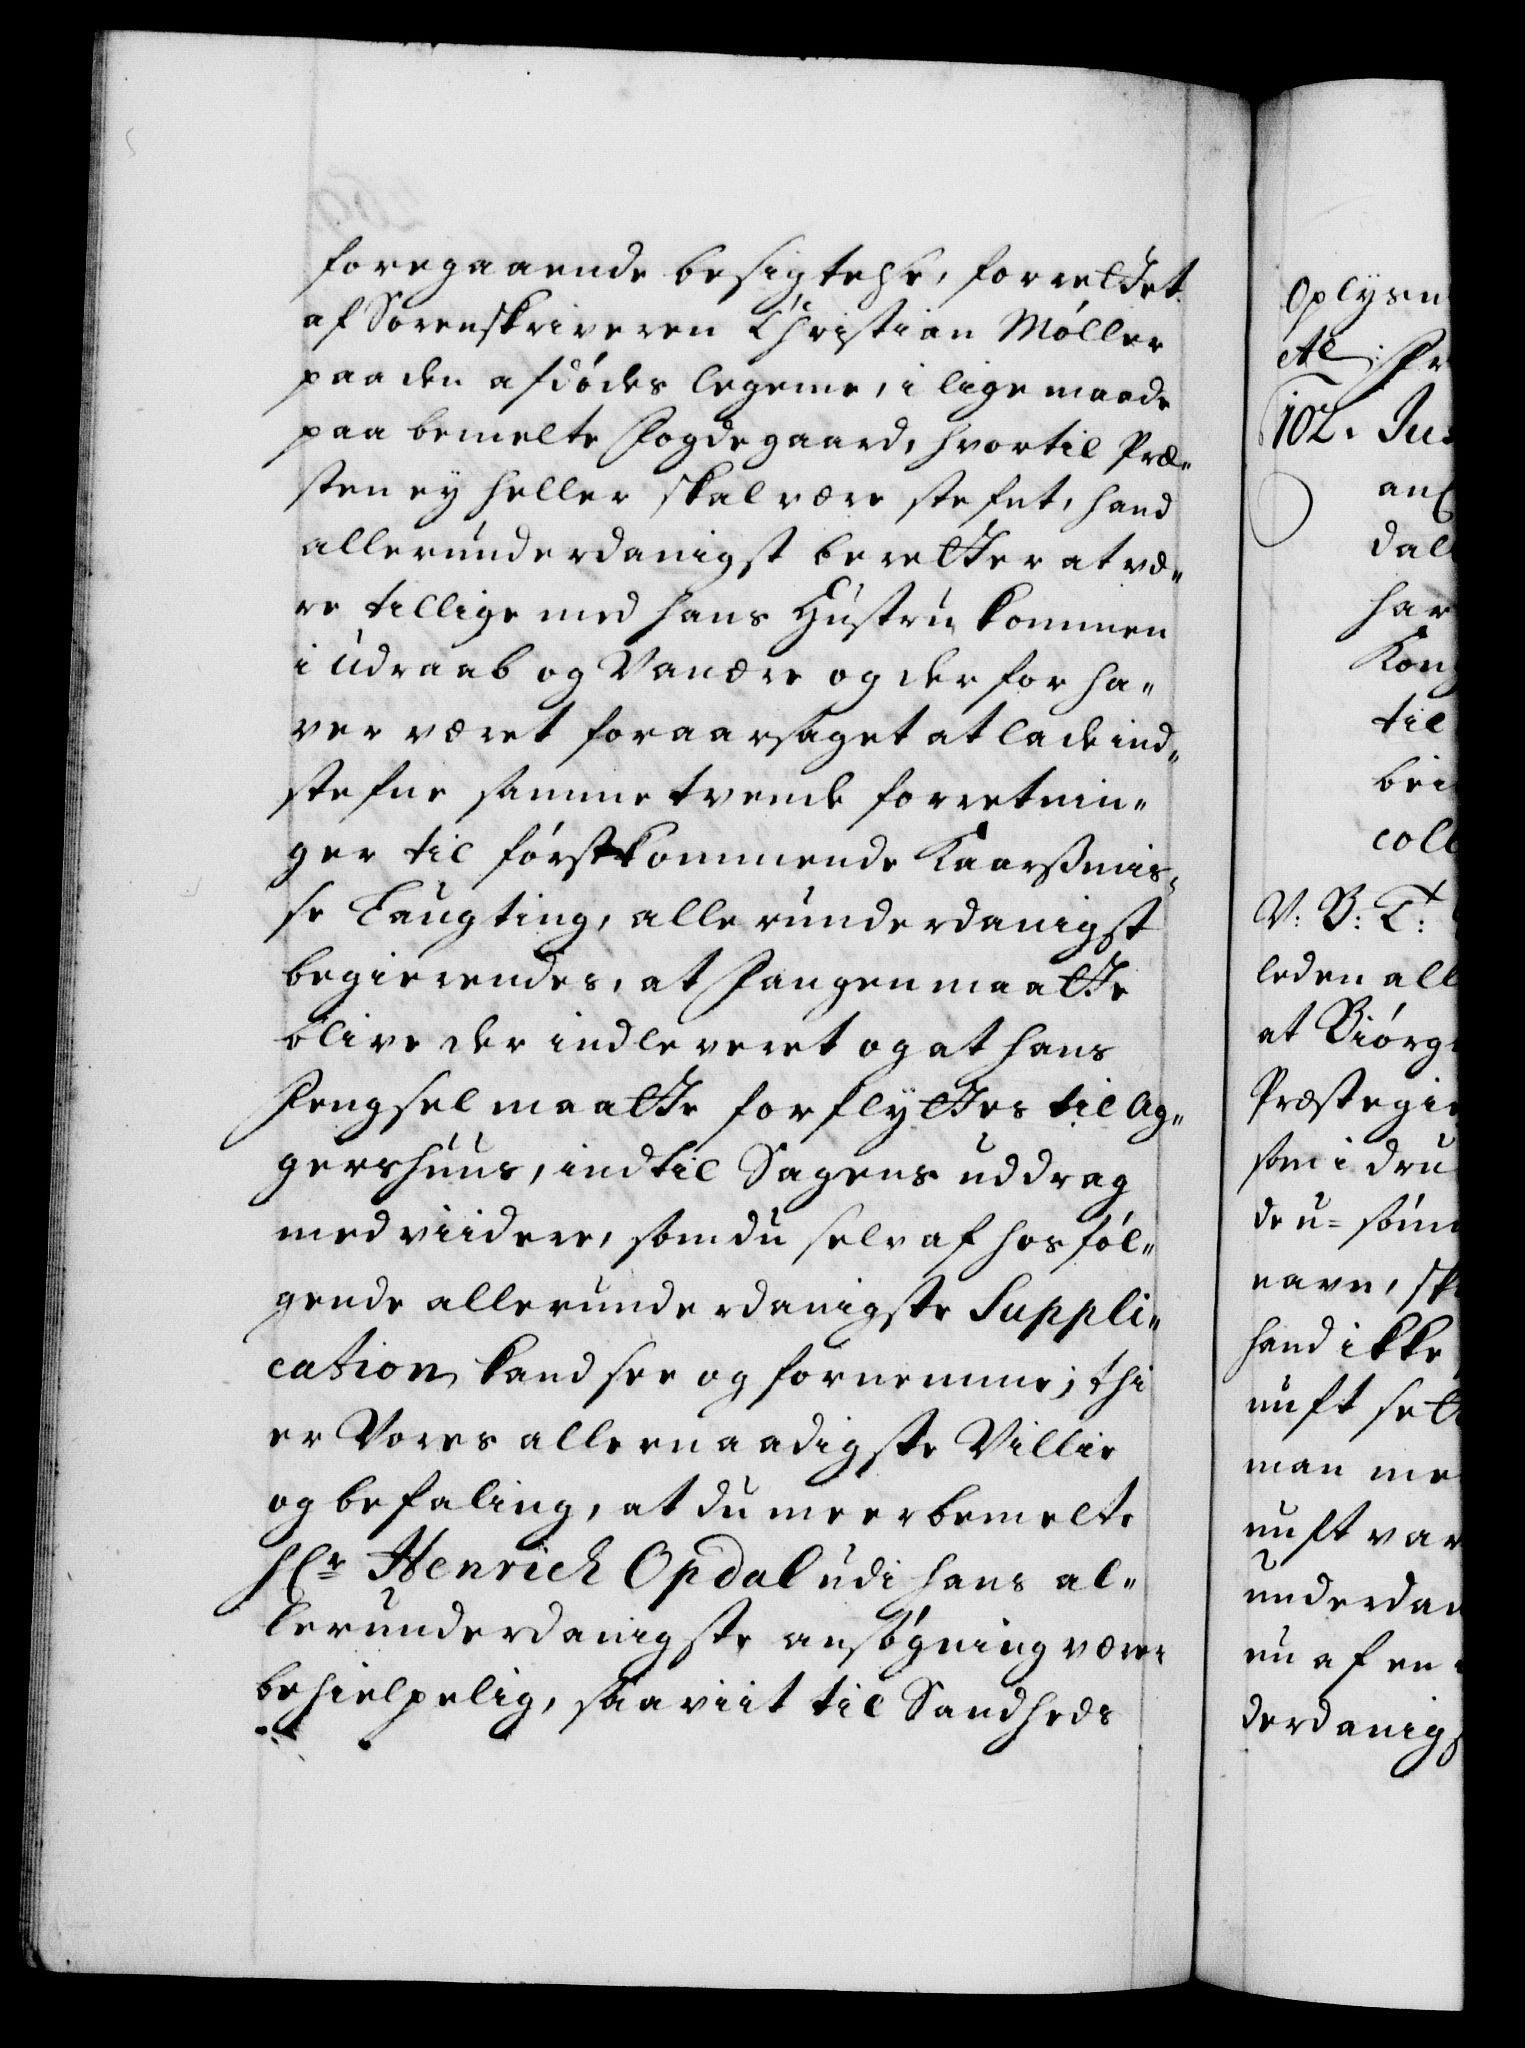 foregaaende besigtelse, forrettet
af Sorenskriveren Christian Møller
paa den afdødes legeme, i lige maade
paa bemelte Fogdegaard, hvortil Præ-
sten ey heller skal være stefnt, hand
allerunderdanigst beretter at væ-
re tillige med hans Hustru kommen
i udraab og Vanære og derfor ha-
ver været foraarsaget at lade ind-
stefne samme tvende forretnin-
ger til førstkommende Kaarßmis-
se Laugting, allerunderdanigst
begierendes, at Fangen maatte
blive der indleveret og at hans
Fengsel maatte forflyttes til Ag-
gershuus, indtil Sagens uddrag
med viidere, som du selv af hosføl-
gende allerunderdanigste Suppli-
cation kand see og fornemme; thi
er Vores allernaadigste Villie
og befaling, at du meerbemelte
Hr Henrich Opdal udi hans al-
lerunderdanigste ansøgning være
behielpelig, saa viit til Sandheds
Oplysn
102. Ju
dal
har
Kong
til
bei
coll
V: B: T:
leden all
at Biørg
Præstegi
som i dru
de u-søm
navn, sk
hand ikke
nuft sett
man me
nuft var
underdan
nu af en
derdanigs